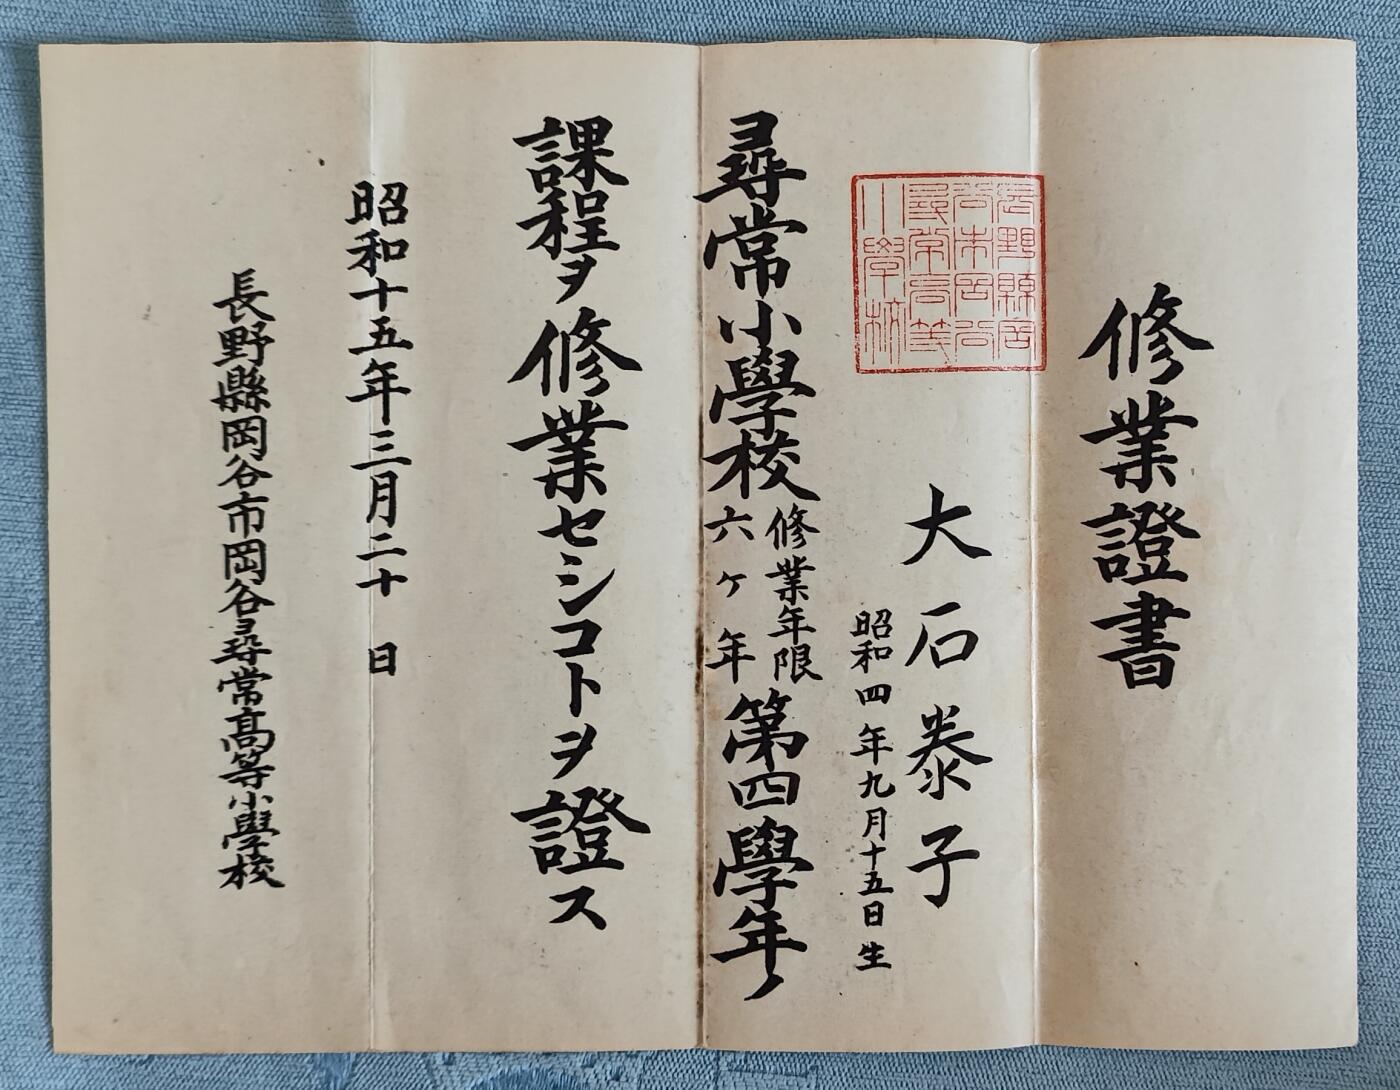 修業證書
長野縣岡
谷市岡谷
尋常高等
小學校
大石泰子
昭和四年九月十五日生
尋常小學校修業年限六ケ年第四學年ノ
課程ヲ修業セシコトヲ證ス
昭和十五年三月二十日
長野縣岡谷市岡谷尋常高等小學校